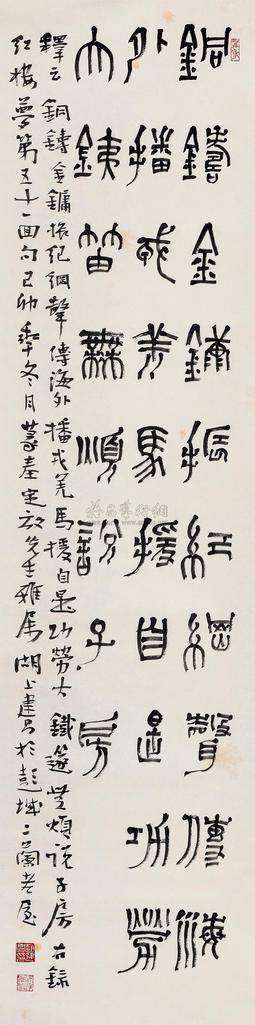 銅鑄金鏞振紀綱聲傳海
外播戎羌馬援自是功勞
大鐵笛無煩說子房
釋云 銅鑄金鏞振紀綱聲傳海外播戎羌馬援自是功勞大鐵篴無煩說子房 右錄
紅樓夢第五十一回句己卯年冬月篆奉定放先生雅属湖上建於彭城二蘭老屋